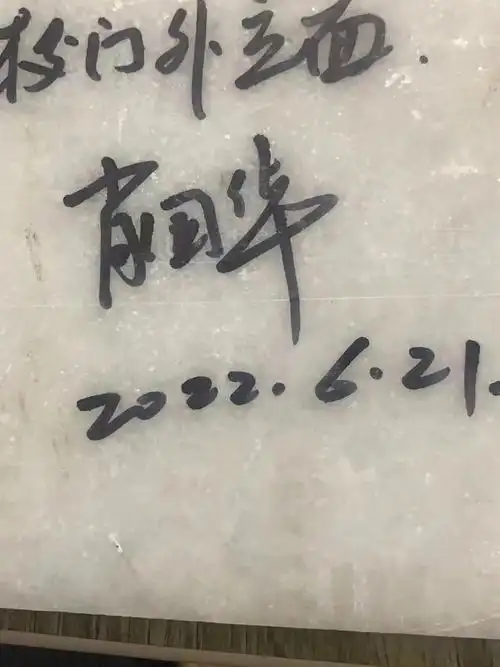 校门外立面.
肖国华
2022.6.21.